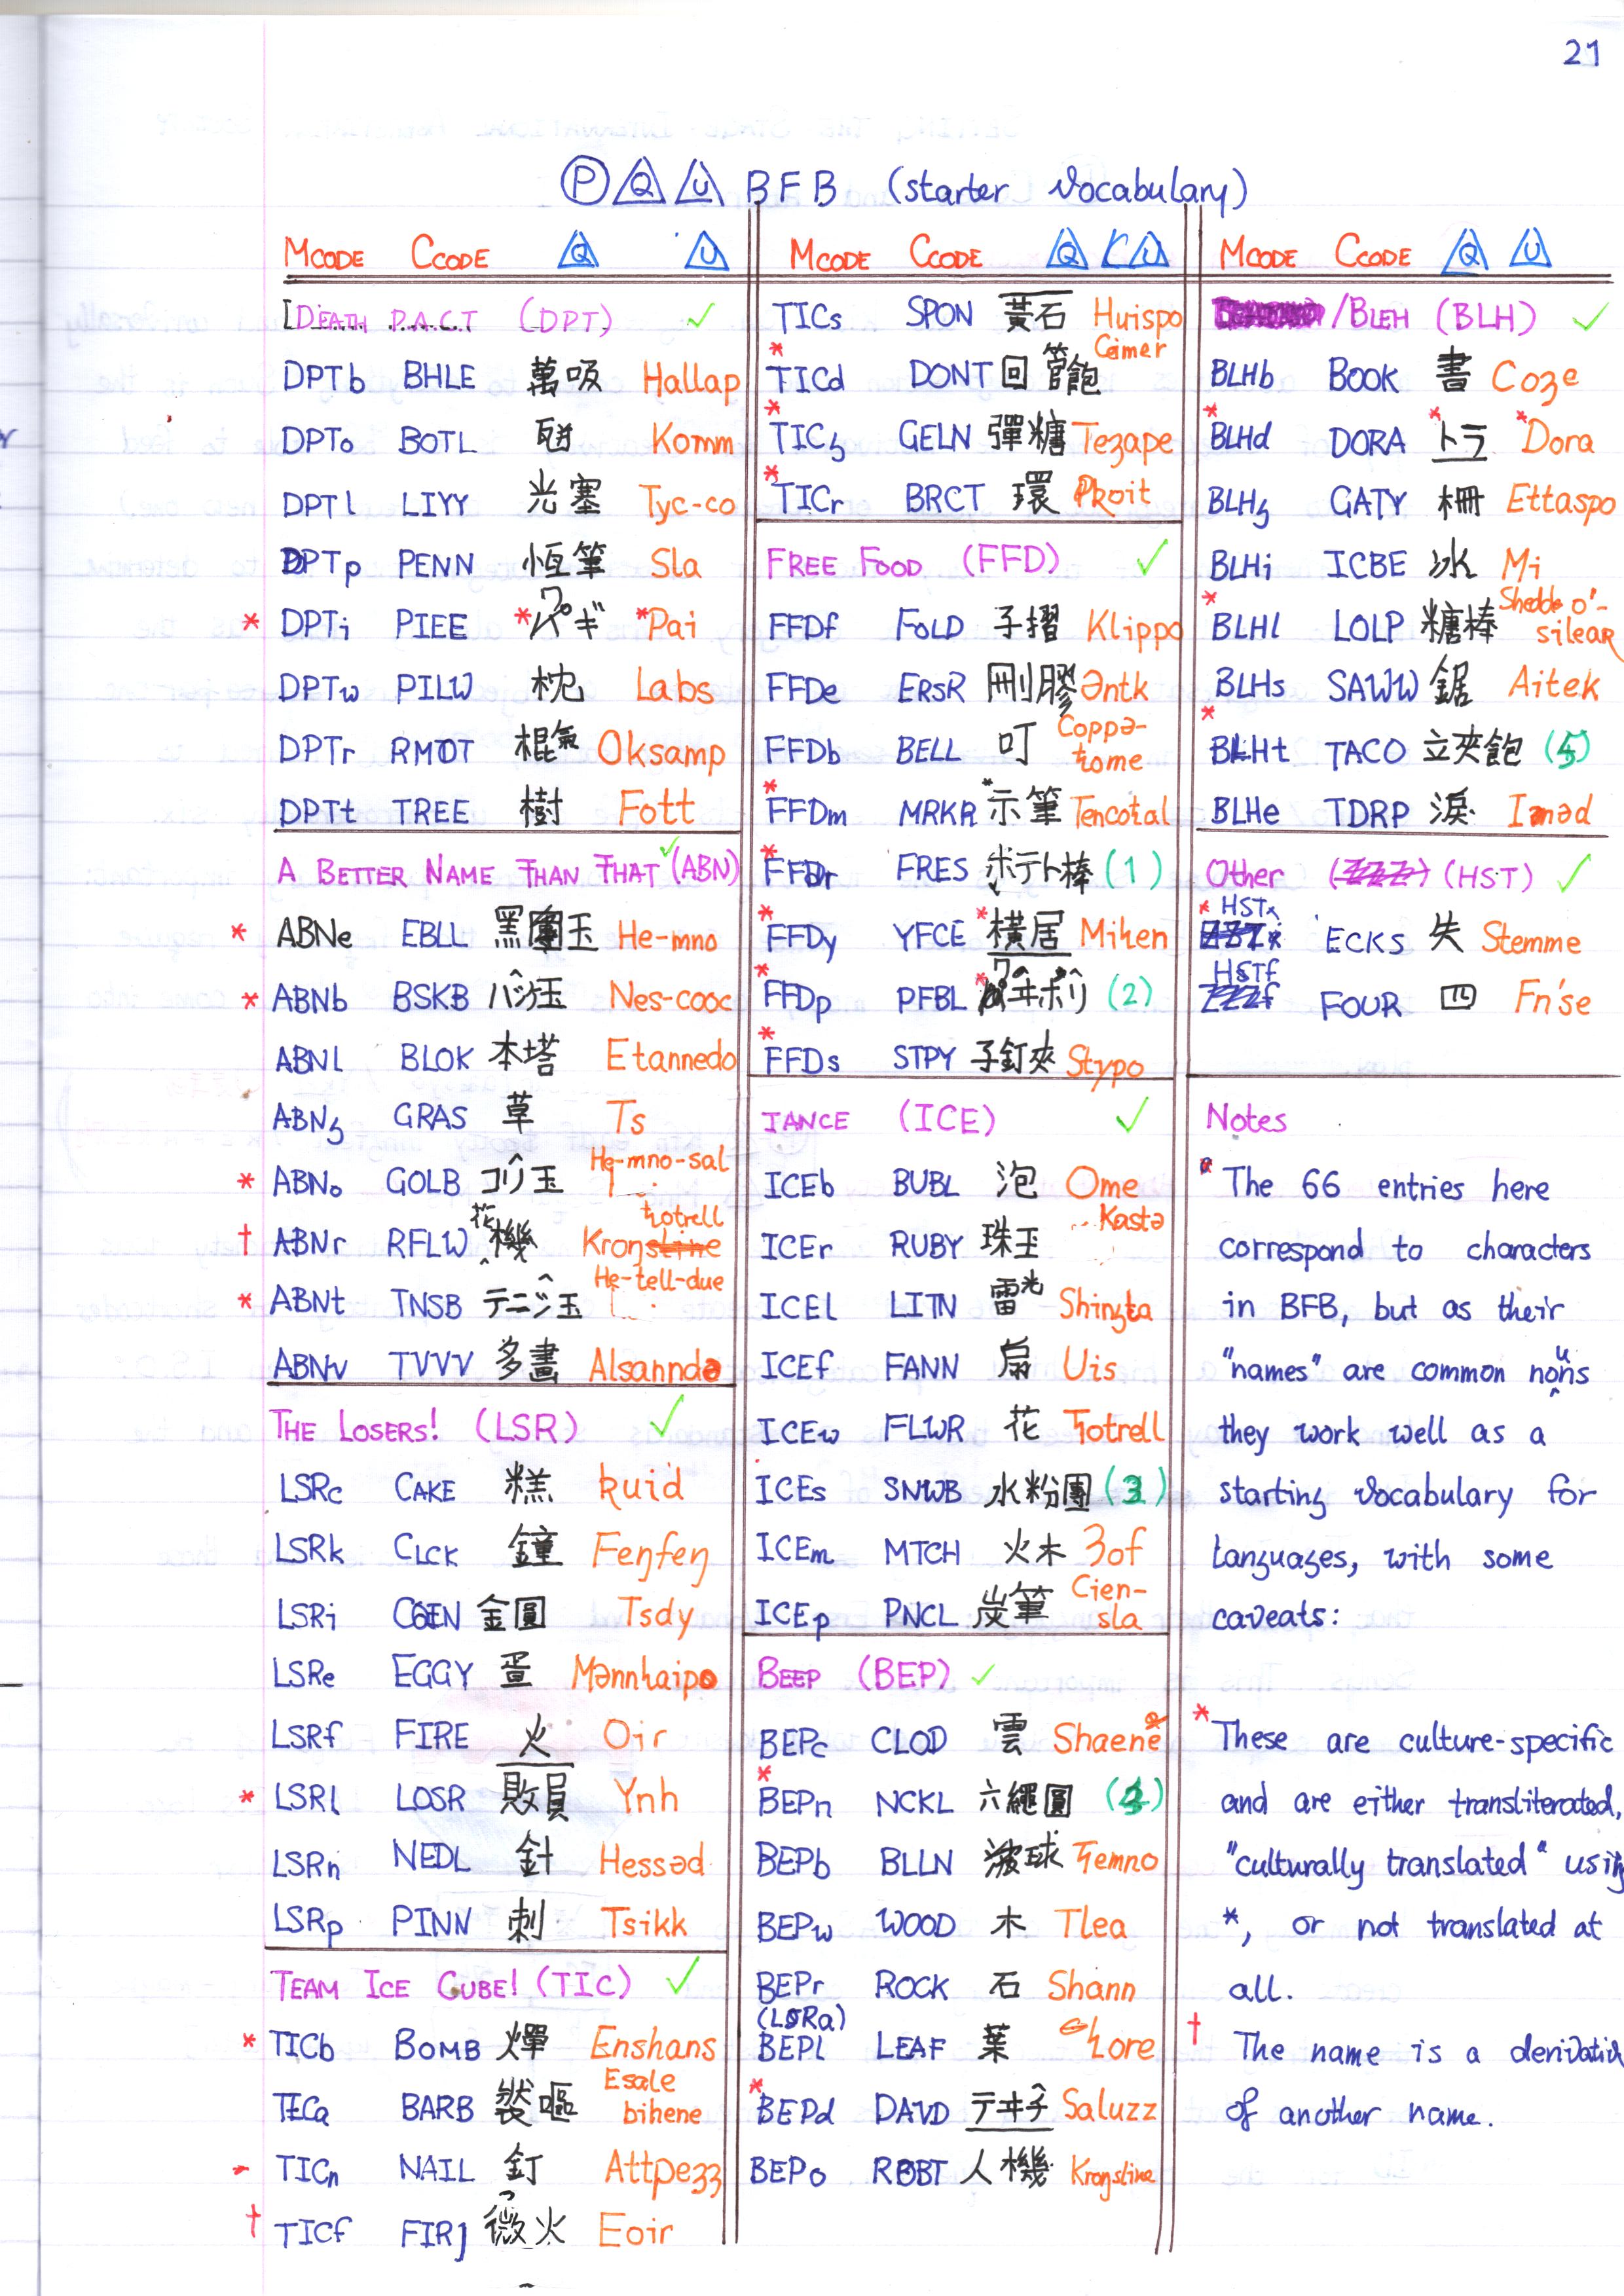 21
P Q U BFB (starter vocabulary)
MCODE CCODE Q U
[DEATH P.A.C.T (DPT) ✓
DPTb BHLE 萬吸 Hallap
DPTo BOTL Komm
DPTl LIYY 光塞 Tyc-co
DPTp PENN 恆筆 Sla
* DPTi PIEE * *Pai
DPTw PILW 枕 Labs
DPTr RMOT 棍氣 Oksamp
DPTt TREE 樹 Fott
A BETTER NAME THAN THAT ✓ (ABN)
* ABNe EBLL 黑團玉 He-mno
* ABNb BSKB Nes-cooc
ABNl BLOK 本塔 Etannedo
ABNg GRAS 草 Ts
* ABNo GOLB He-mno-sal
† ABNr RFLW 花機 Krongstine ħotrell
* ABNt TNSB He-tell-due
ABNv TVVV 多畫 Alsanndə
THE LOSERS! (LSR) ✓
LSRc CAKE 糕 kuid
LSRk CLCK 鐘 Feŋfeŋ
LSRi COIN 金圓 Tsdy
LSRe EGGY 蛋 Mənnhaipo
LSRf FIRE 火 Oir
* LSRl LOSR 敗員 Ynh
LSRn NEDL 針 Hessəd
LSRp PINN 刺 Tsikk
TEAM ICE CUBE! (TIC) ✓
* TICb BOMB 燀 Enshans
TICa BARB Esale bihene
- TICn NAIL 釘 Attpeʒʒ
† TICf FIRJ 微火 Eoir
MCODE CCODE Q U
TICs SPON 黃石 Huispo
* TICd DONT 回管飽 Cəimer
* TICg GELN 彈糖 Teʒape
* TICr BRCT 環 Pkoit
FREE FOOD (FFD) ✓
FFDf FOLD 子摺 Klippo
FFDe ERSR 刪膠 Əntk
FFDb BELL 叮 Coppə-ħome
* FFDm MRKR *示筆 Tencotal
* FFDr FRES ポテト棒 (1)
* FFDy YFCE *橫居 Mihen
* FFDp PFBL (2)
* FFDs STPY 子釘夾 Stypo
IANCE (ICE) ✓
ICEb BUBL 泡 Ome
ICEr RUBY 珠玉 Kastə
ICEl LITN 雷光 Shingta
ICEf FANN 扇 Uis
ICEw FLWR 花 Ħotrell
ICEs SNWB 水粉團 (3)
ICEm MTCH 火木 Ʒof
ICEp PNCL 炭筆 Cien-sla
BEEP (BEP) ✓
BEPc CLOD 雲 Shaene
* BEPn NCKL 六繩圓 (4)
BEPb BLLN 球 Ħemno
BEPw WOOD 木 Tlea
BEPr ROCK 石 Shann
(LSRa)
BEPl LEAF 葉 ħore
* BEPd DAVD Saluzz
BEPo RBBT 人機 Krongstine
MCODE CCODE Q U
/BLEH (BLH) ✓
BLHb BOOK 書 Coʒe
* BLHd DORA *トラ *Dora
BLHg GATY 柵 Ettaspo
BLHi ICBE 冰 Mi
* BLHl LOLP 糖棒 Shedde o'-silear
BLHs SAWW 鋸 Aitek
* BLHt TACO 立夾飽 (5)
BLHe TDRP 淚 Iməd
Other (ZZZ) (HST) ✓
* HSTx ECKS 失 Stemme
HSTf ZZZf FOUR 四 Fn'se
Notes
The 66 entries here
correspond to characters
in BFB, but as their
"names" are common nouns
they work well as a
starting vocabulary for
languages, with some
caveats:
* These are culture-specific
and are either transliterated,
"culturally translated" using
*, or not translated at
all.
† The name is a derivativ
of another name.